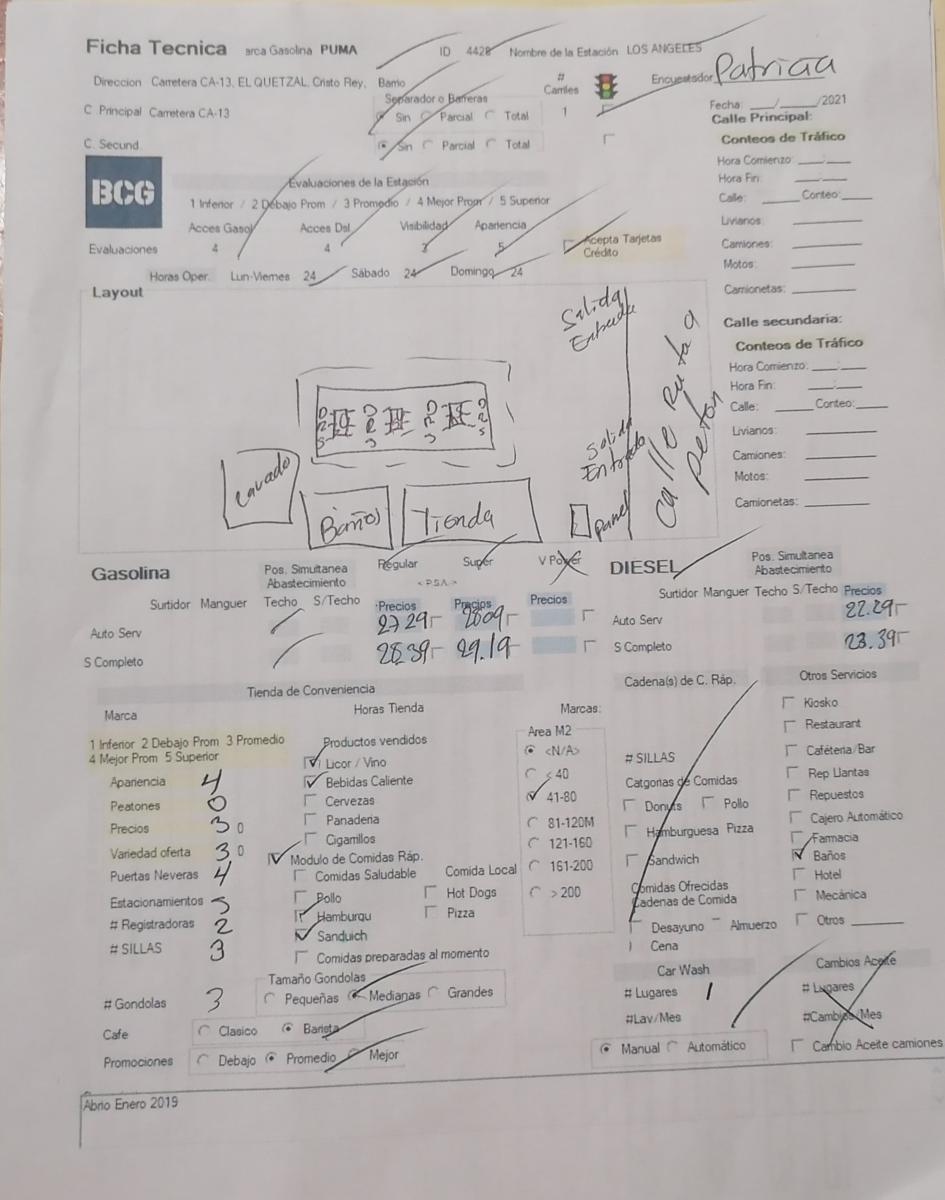 Ficha Tecnica arca Gasolina PUMA ID 4428 Nombre de la Estación LOS ANGELES
Direccion Carretera CA-13, EL QUETZAL, Cristo Rey, Barrio
# Carriles
Encuestador Patricia
Separador o Barreras
C Principal Carretera CA-13 Sin Parcial Total 1
Fecha: ___/_____/2021
C. Secund. Sin Parcial Total
Calle Principal:
Conteos de Tráfico
Hora Comienzo: ___:___
Hora Fin: ___:___
Calle: _____ Conteo:_____
Livianos:
Camiones:
Motos:
Camionetas:
BCG
Evaluaciones de la Estación
1 Inferior / 2 Debajo Prom / 3 Promedio / 4 Mejor Prom / 5 Superior
Acces Gasol Acces Dsl Visibilidad Apariencia
Evaluaciones 4 4 3 5
Acepta Tarjetas Crédito
Horas Oper. Lun-Viernes 24 Sábado 24 Domingo 24
Layout
Salida
Entrada
Salida
Entrada
Calle Ruta a Peten
Lavado
Baños
Tienda
Panel
Calle secundaria:
Conteos de Tráfico
Hora Comienzo: ___:___
Hora Fin: ___:___
Calle: _____ Conteo:_____
Livianos:
Camiones:
Motos:
Camionetas:
Gasolina
Pos. Simultanea Abastecimiento
Regular Super V Power
< P.S.A. >
Surtidor Manguer Techo S/Techo Precios Precios Precios
Auto Serv 27.29 28.09
S Completo 28.39 29.19
DIESEL
Pos. Simultanea Abastecimiento
Surtidor Manguer Techo S/Techo Precios
Auto Serv 22.29
S Completo 23.39
Tienda de Conveniencia
Marca Horas Tienda
1 Inferior 2 Debajo Prom 3 Promedio
4 Mejor Prom 5 Superior
Apariencia 4
Peatones 0
Precios 3 0
Variedad oferta 3 0
Puertas Neveras 4
Estacionamientos 5
# Registradoras 2
# SILLAS 3
# Gondolas 3
Productos vendidos
Licor / Vino
Bebidas Caliente
Cervezas
Panaderia
Cigarrillos
Modulo de Comidas Ráp.
Comidas Saludable Comida Local
Pollo Hot Dogs
Hamburqu Pizza
Sanduich
Comidas preparadas al momento
Tamaño Gondolas
Pequeñas Medianas Grandes
Cafe Clasico Barista
Promociones Debajo Promedio Mejor
Marcas:
Area M2
<N/A>
< 40
41-80
81-120M
121-160
161-200
> 200
Cadena(s) de C. Ráp.
# SILLAS
Catgorias de Comidas
Donuts Pollo
Hamburguesa Pizza
Sandwich
Comidas Ofrecidas
Cadenas de Comida
Desayuno Almuerzo
Cena
Otros Servicios
Kiosko
Restaurant
Caféteria/Bar
Rep Llantas
Repuestos
Cajero Automático
Farmacia
Baños
Hotel
Mecánica
Otros
Car Wash
# Lugares 1
#Lav/Mes
Manual Automático
Cambios Aceite
# Lugares
#Cambios/Mes
Cambio Aceite camiones
Abrio Enero 2019